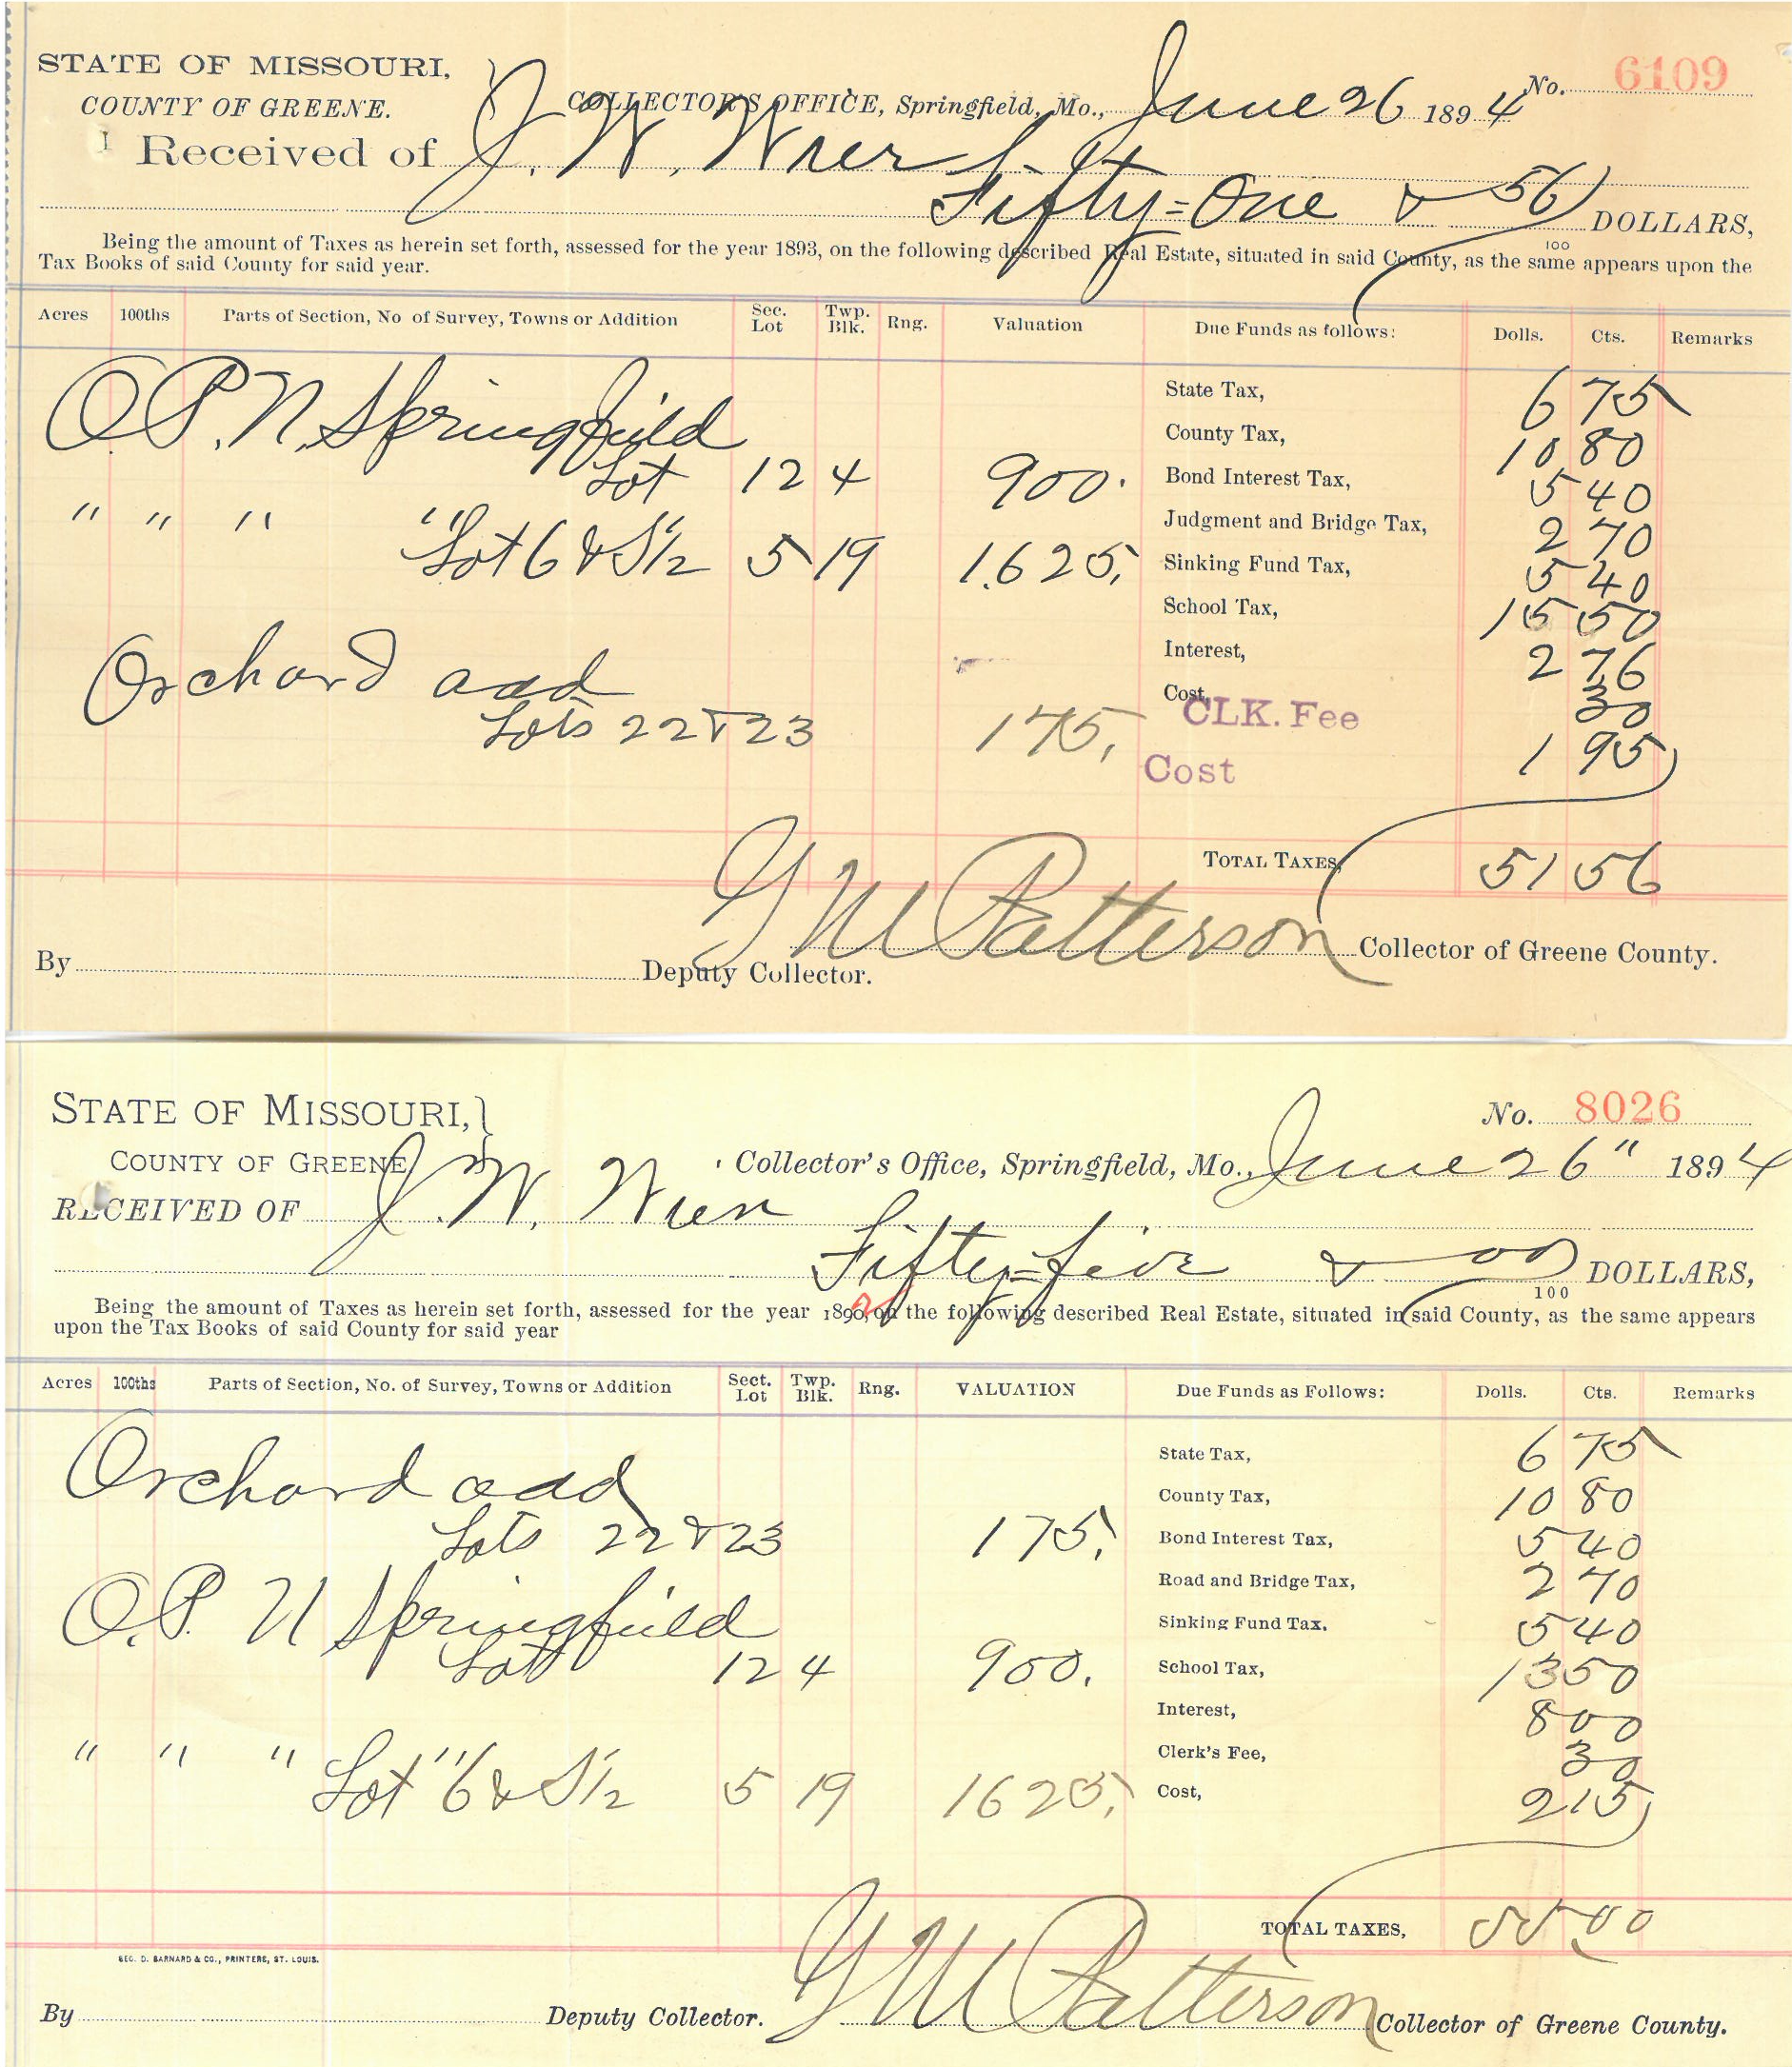 STATE OF MISSOURI,
COUNTY OF GREENE.
COLLECTOR'S OFFICE, Springfield, Mo., June 26 1894
No. 6109
Received of J. W. Wier
Fifty=One & 56/100 DOLLARS,
Being the amount of Taxes as herein set forth, assessed for the year 1893, on the following described Real Estate, situated in said County, as the same appears upon the
Tax Books of said County for said year.
Acres 100ths Parts of Section, No of Survey, Towns or Addition Sec. Lot Twp. Blk. Rng. Valuation Due Funds as follows: Dolls. Cts. Remarks
State Tax, 6 75
O.P. N. Springfield
County Tax, 10 80
Lot 12 4 900. Bond Interest Tax, 5 40
" " " " Judgment and Bridge Tax, 2 70
Lot 6 & S 1/2 5 19 1625. Sinking Fund Tax, 5 40
School Tax, 15 50
Interest, 2 76
Orchard add
Cost, CLK. Fee 30
Lots 22 & 23 175.
Cost 1 95
TOTAL TAXES, 51 56
G M Patterson Collector of Greene County.
By Deputy Collector.
STATE OF MISSOURI,
No. 8026
COUNTY OF GREENE
Collector's Office, Springfield, Mo., June 26" 1894
RECEIVED OF J. W. Wier
Fifty=five & 00/100 DOLLARS,
Being the amount of Taxes as herein set forth, assessed for the year 1892, on the following described Real Estate, situated in said County, as the same appears
upon the Tax Books of said County for said year
Acres 100ths Parts of Section, No. of Survey, Towns or Addition Sect. Lot Twp. Blk. Rng. VALUATION Due Funds as Follows: Dolls. Cts. Remarks
State Tax, 6 75
Orchard add
County Tax, 10 80
Lots 22 & 23 175. Bond Interest Tax, 5 40
Road and Bridge Tax, 2 70
O.P. N Springfield
Sinking Fund Tax. 5 40
Lot 12 4 900. School Tax, 13 50
Interest, 8 00
" " " " Clerk's Fee, 30
Lot 6 & S 1/2 5 19 1625. Cost, 2 15
TOTAL TAXES, 55.00
GEO. D. BARNARD & CO., PRINTERS, ST. LOUIS.
By Deputy Collector. G M Patterson Collector of Greene County.